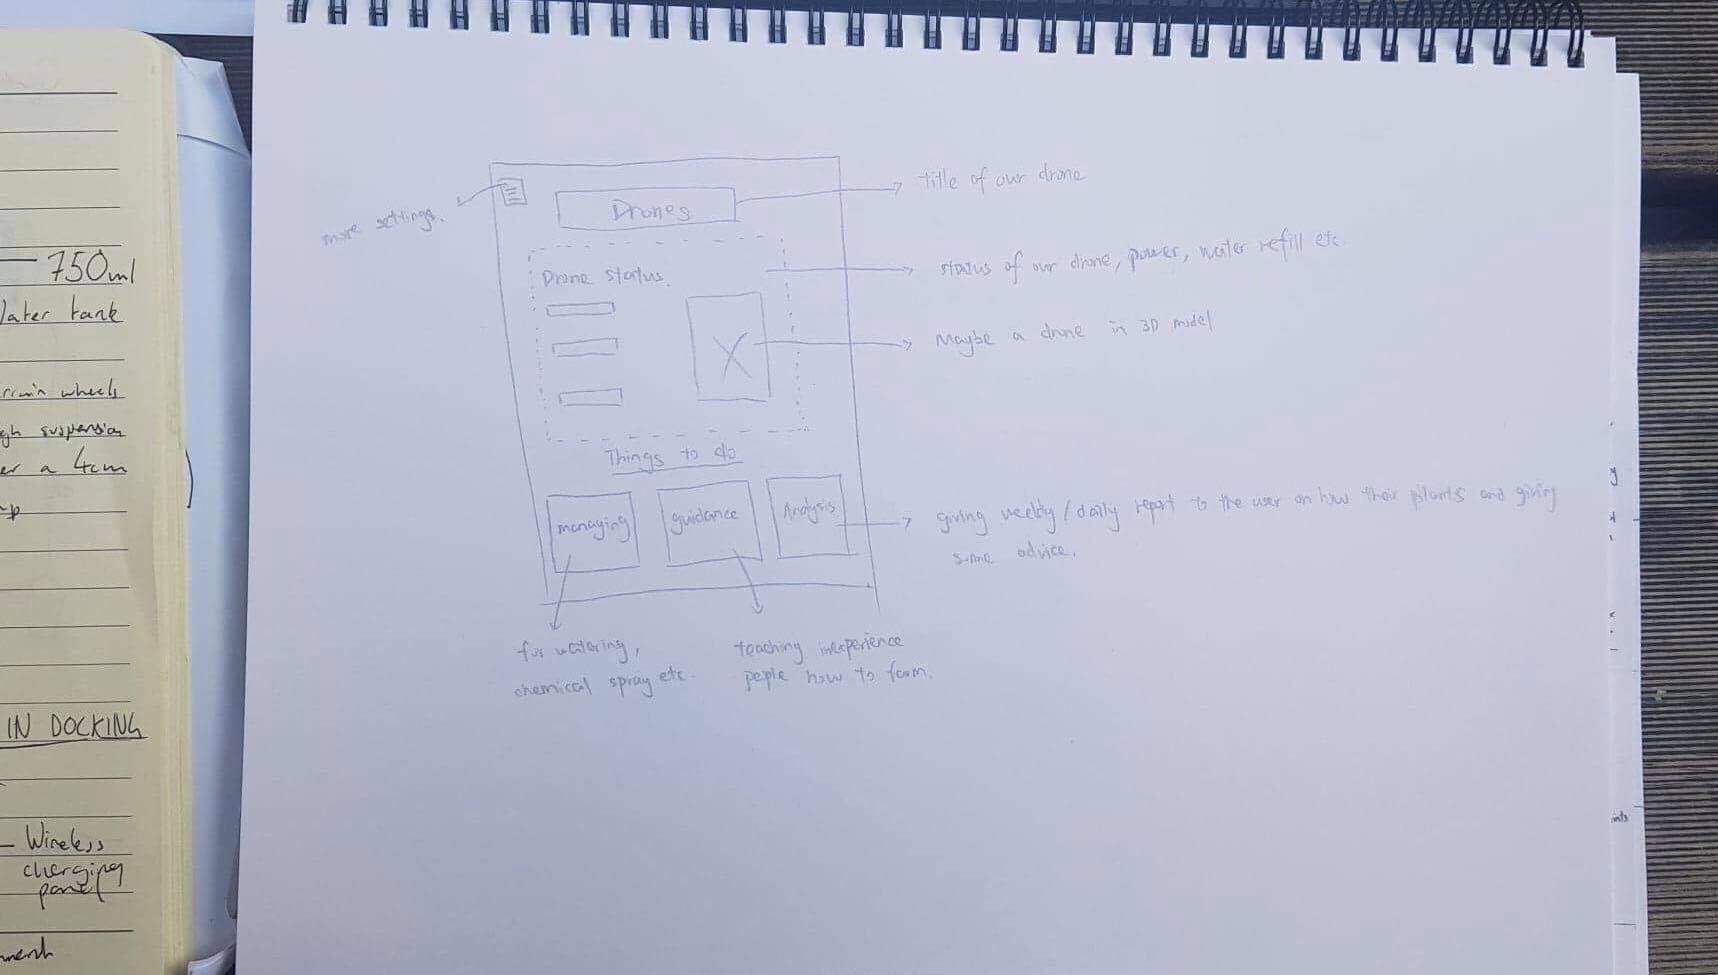 750ml
water tank
wheels
suspension
a 4cm
IN DOCKING
- Wireless
charging
panel
more settings.
Drones
title of our drone
Drone status.
status of our drone, power, water refill etc.
X
Maybe a drone in 3D model
Things to do
managing
guidance
Analysis
giving weekly/daily report to the user on how their plants and giving
some advice.
for watering,
chemical spray etc.
teaching inexperience
people how to farm.